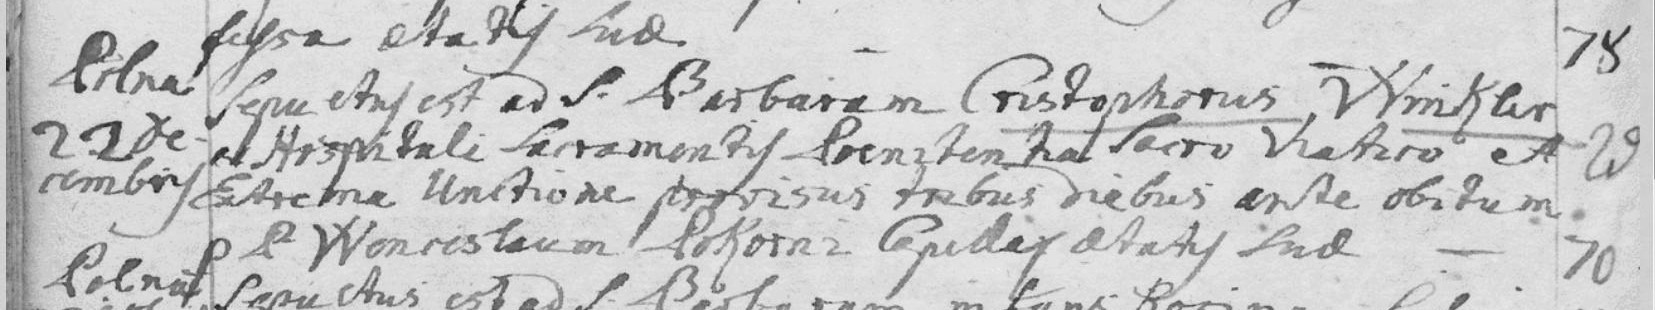 fessa ætatis suæ — 78
Polna Sepultus est ad S. Barbaram Cristophorus Winkler
22 De- ex Hospitali Sacramentis Poenitentia Sacro Viatico et
cembris Extrema Unctione provisus tribus diebus ante obitum
p P Wenceslaum Pokorni Capellā ætatis suæ — 70
Polna Sepultus est ad S. Barbaram